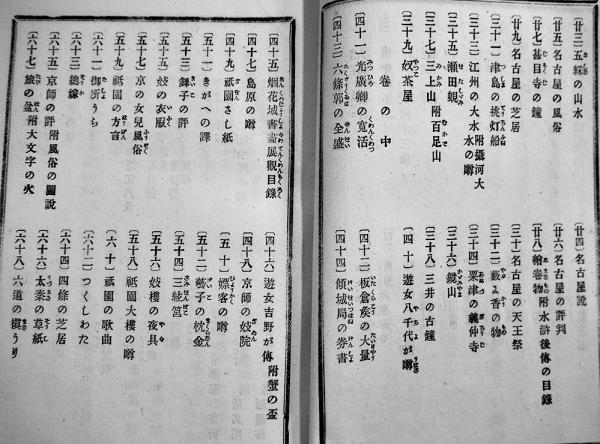 〔廿三〕五綵の山水
〔廿四〕名古屋訛
〔廿五〕名古屋の風俗
〔廿六〕名古屋の評判
〔廿七〕甚目寺の鐘
〔廿八〕繪卷物附水滸後傳の目錄
〔廿九〕名古屋の芝居
〔三十〕名古屋の天王祭
〔三十一〕津島の挑灯船
〔三十二〕藪に香の物
〔三十三〕江州の大水附攝河大水の噂
〔三十四〕粟津の義仲寺
〔三十五〕瀬田蜆
〔三十六〕鏡山
〔三十七〕三上山附百足山
〔三十八〕三井の古鐘
〔三十九〕奴茶屋
〔四十〕遊女八千代が噂
卷の中
〔四十一〕光廣卿の寛活
〔四十二〕板倉殿の大量
〔四十三〕六條郭の全盛
〔四十四〕傾城局の券書
〔四十五〕烟花城書畵展觀目錄
〔四十六〕遊女吉野が傳附蟹の盃
〔四十七〕島原の噂
〔四十八〕京師の妓院
〔四十九〕祇園さし紙
〔五十〕嫖客の噂
〔五十一〕きがへの譯
〔五十二〕藝子の枕金
〔五十三〕舞子の評
〔五十四〕三絃筥
〔五十五〕妓の衣服
〔五十六〕妓樓の夜具
〔五十七〕京の女兒風俗
〔五十八〕祇園大樓の噂
〔五十九〕祇園の方言
〔六十〕祇園の歌曲
〔六十一〕御所うら
〔六十二〕つくしわた
〔六十三〕總嫁
〔六十四〕四條の芝居
〔六十五〕京師の評附風俗の圖說
〔六十六〕太秦の草紙
〔六十七〕旅の盆附大文字の火
〔六十八〕六道の槇うり